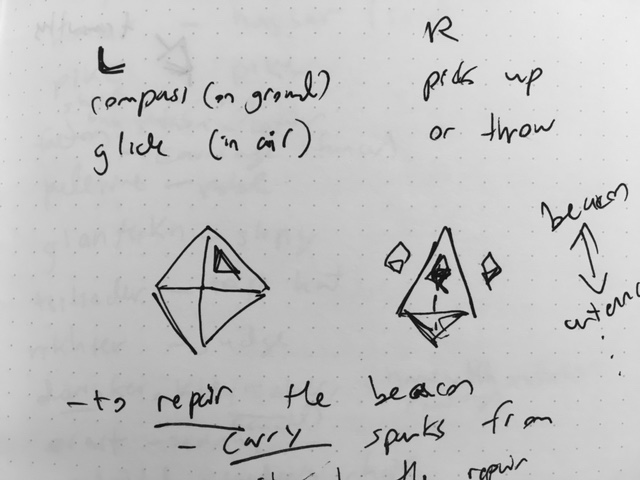 L
compass (on ground)
glide (in air)
R
pick up
or throw
beacon
- to repair the beacon
- carry sparks from
the repair